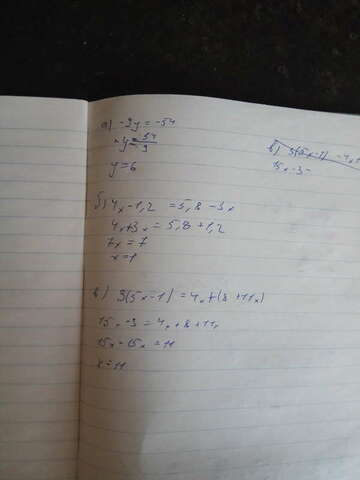 а) -9y = -54
-y = 54/9
y = 6
в) 3(5x-1) -4x+
15x-3-
б) 4x-1,2 = 5,8-3x
4x+3x = 5,8+1,2
7x = 7
x=1
в) 3(5x-1) = 4x+(8+11x)
15x-3=4x+8+11x
15x-15x=11
x=11